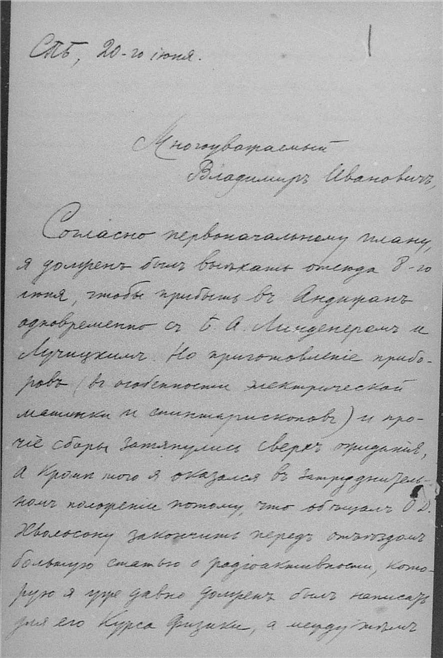 1
СПБ, 20-го іюня.
Многоуважаемый
Владимиръ Ивановичъ,
Согласно первоначальному плану,
я долженъ былъ выѣхать отсюда 8-го
іюня, чтобы прибыть въ Андижанъ
одновременно съ Б. А. Линденеромъ и
Лучицкимъ. Но приготовленіе прибо-
ровъ (въ особенности электрической
машинки и спинтарископовъ) и про-
чіе сборы затянулись сверхъ ожиданія,
а кромѣ того я оказался въ затруднитель-
номъ положеніе потому, что обѣщалъ О. Д.
Хвольсону закончить передъ отъѣздомъ
большую статью о радіоактивности, кото-
рую я уже давно долженъ былъ написать
для его Курса Физики, а между тѣмъ